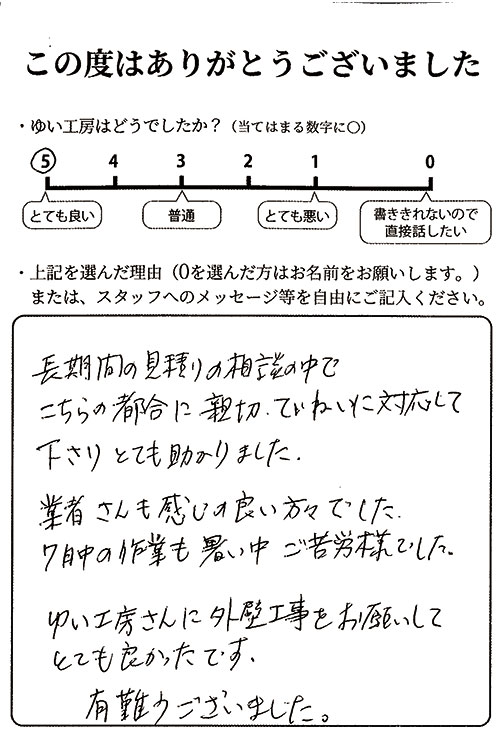 この度はありがとうございました
・ゆい工房はどうでしたか？（当てはまる数字に○）
5 4 3 2 1 0
とても良い 普通 とても悪い 書ききれないので
直接話したい
・上記を選んだ理由（0を選んだ方はお名前をお願いします。）
または、スタッフへのメッセージ等を自由にご記入ください。
長期間の見積りの相談の中で
こちらの都合に親切、ていねいに対応して
下さりとても助かりました.
業者さんも感じの良い方々でした.
7月中の作業も暑い中ご苦労様でした。
ゆい工房さんに外壁工事をお願いして
とても良かったです.
有難うございました。